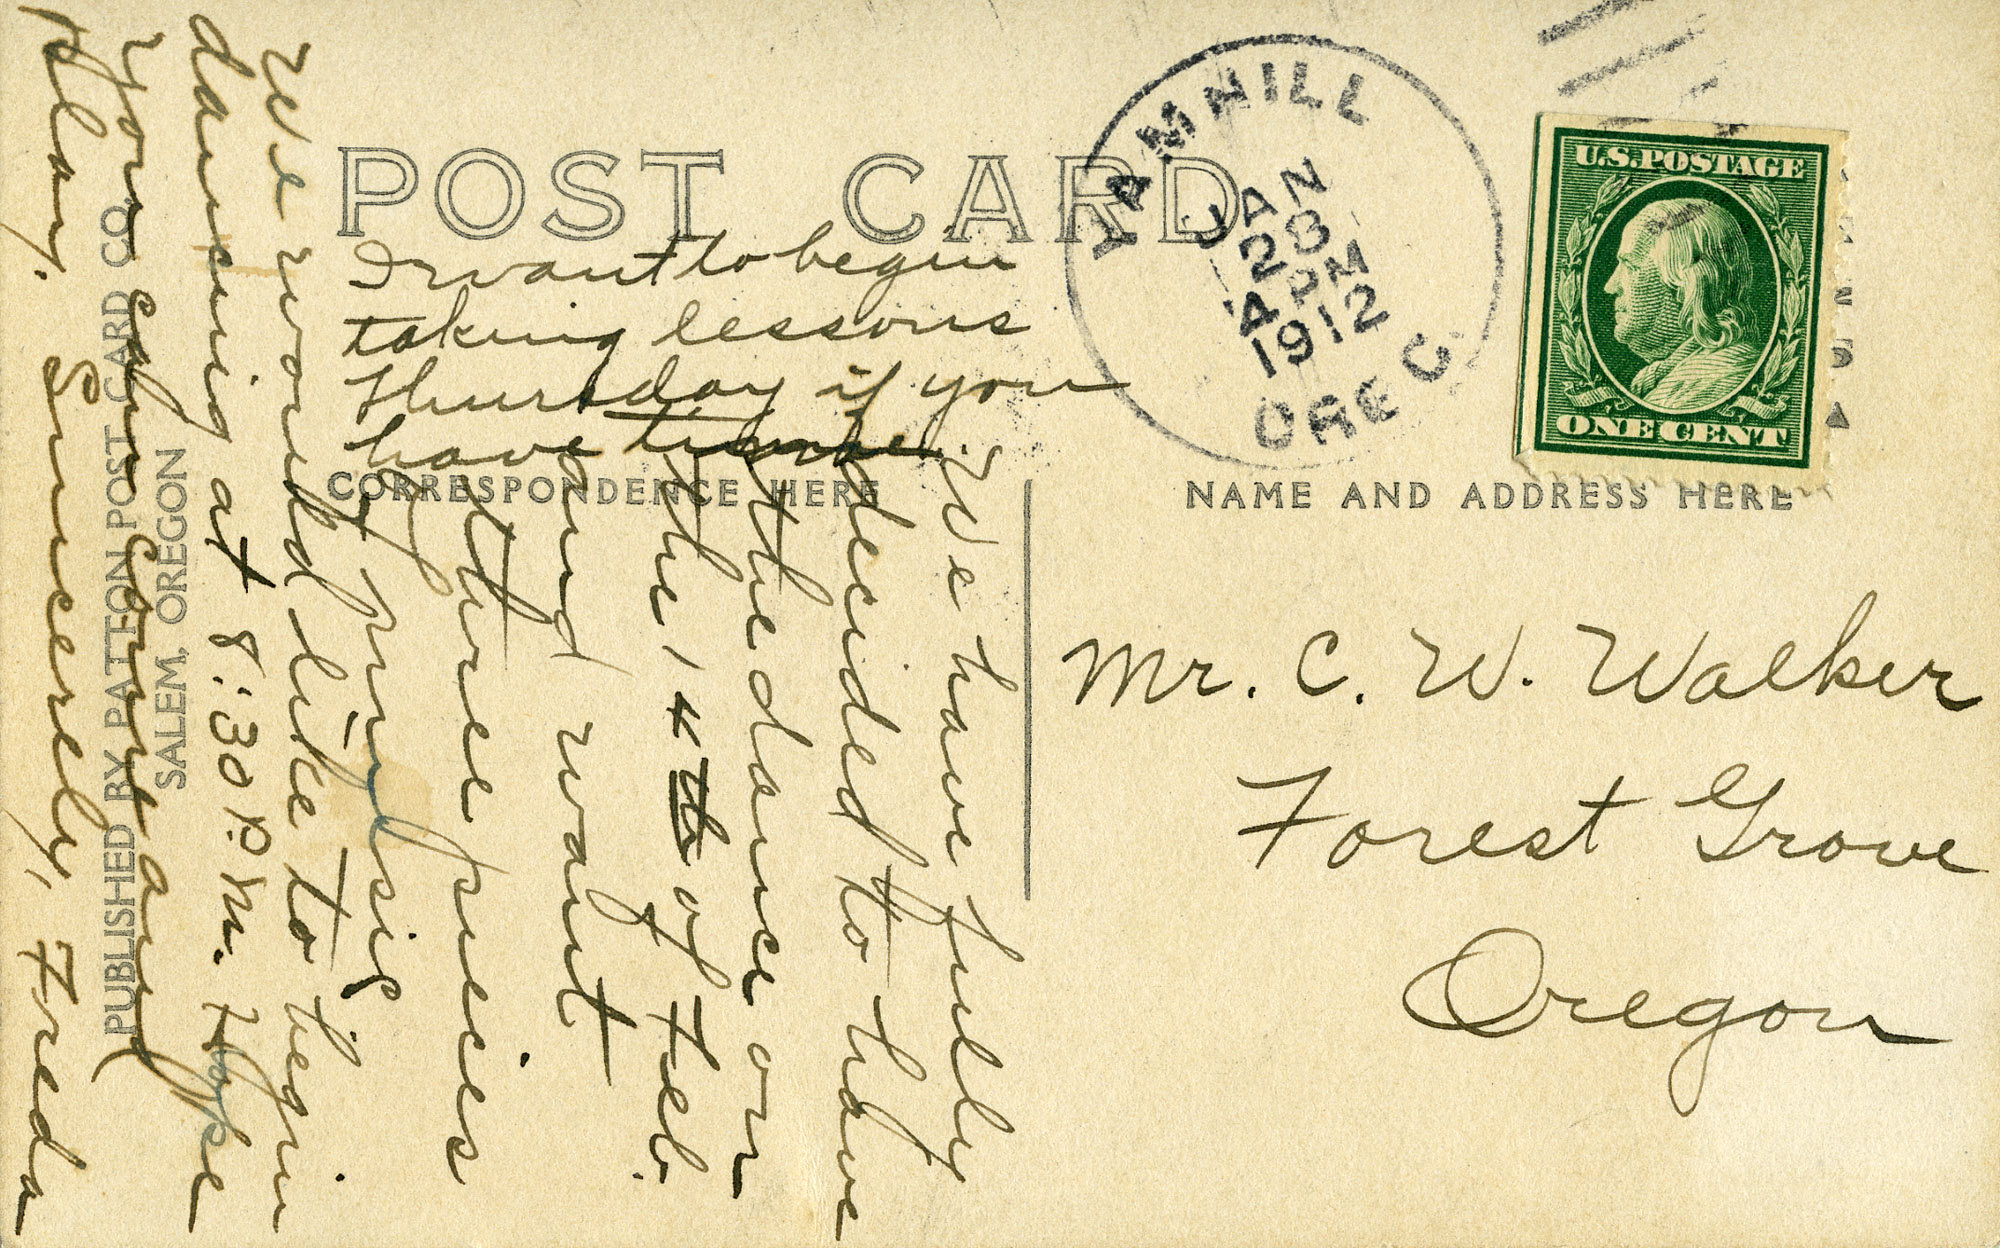 POST CARD
CORRESPONDENCE HERE
NAME AND ADDRESS HERE
YAMHILL
JAN
28
4 PM
1912
OREG
U.S. POSTAGE
ONE CENT
Mr. C. W. Walker
Forest Grove
Oregon
We have fully
decided to have
the dance on
the 14 th of Feb.
and want
three pieces
of music
We would like to begin
dancing at 8:30 P.M. Hope
you can come and
play. Sincerely, Freda
I want to begin
taking lessons
Thursday if you
have time.
PUBLISHED BY PATTON POST CARD CO.
SALEM, OREGON